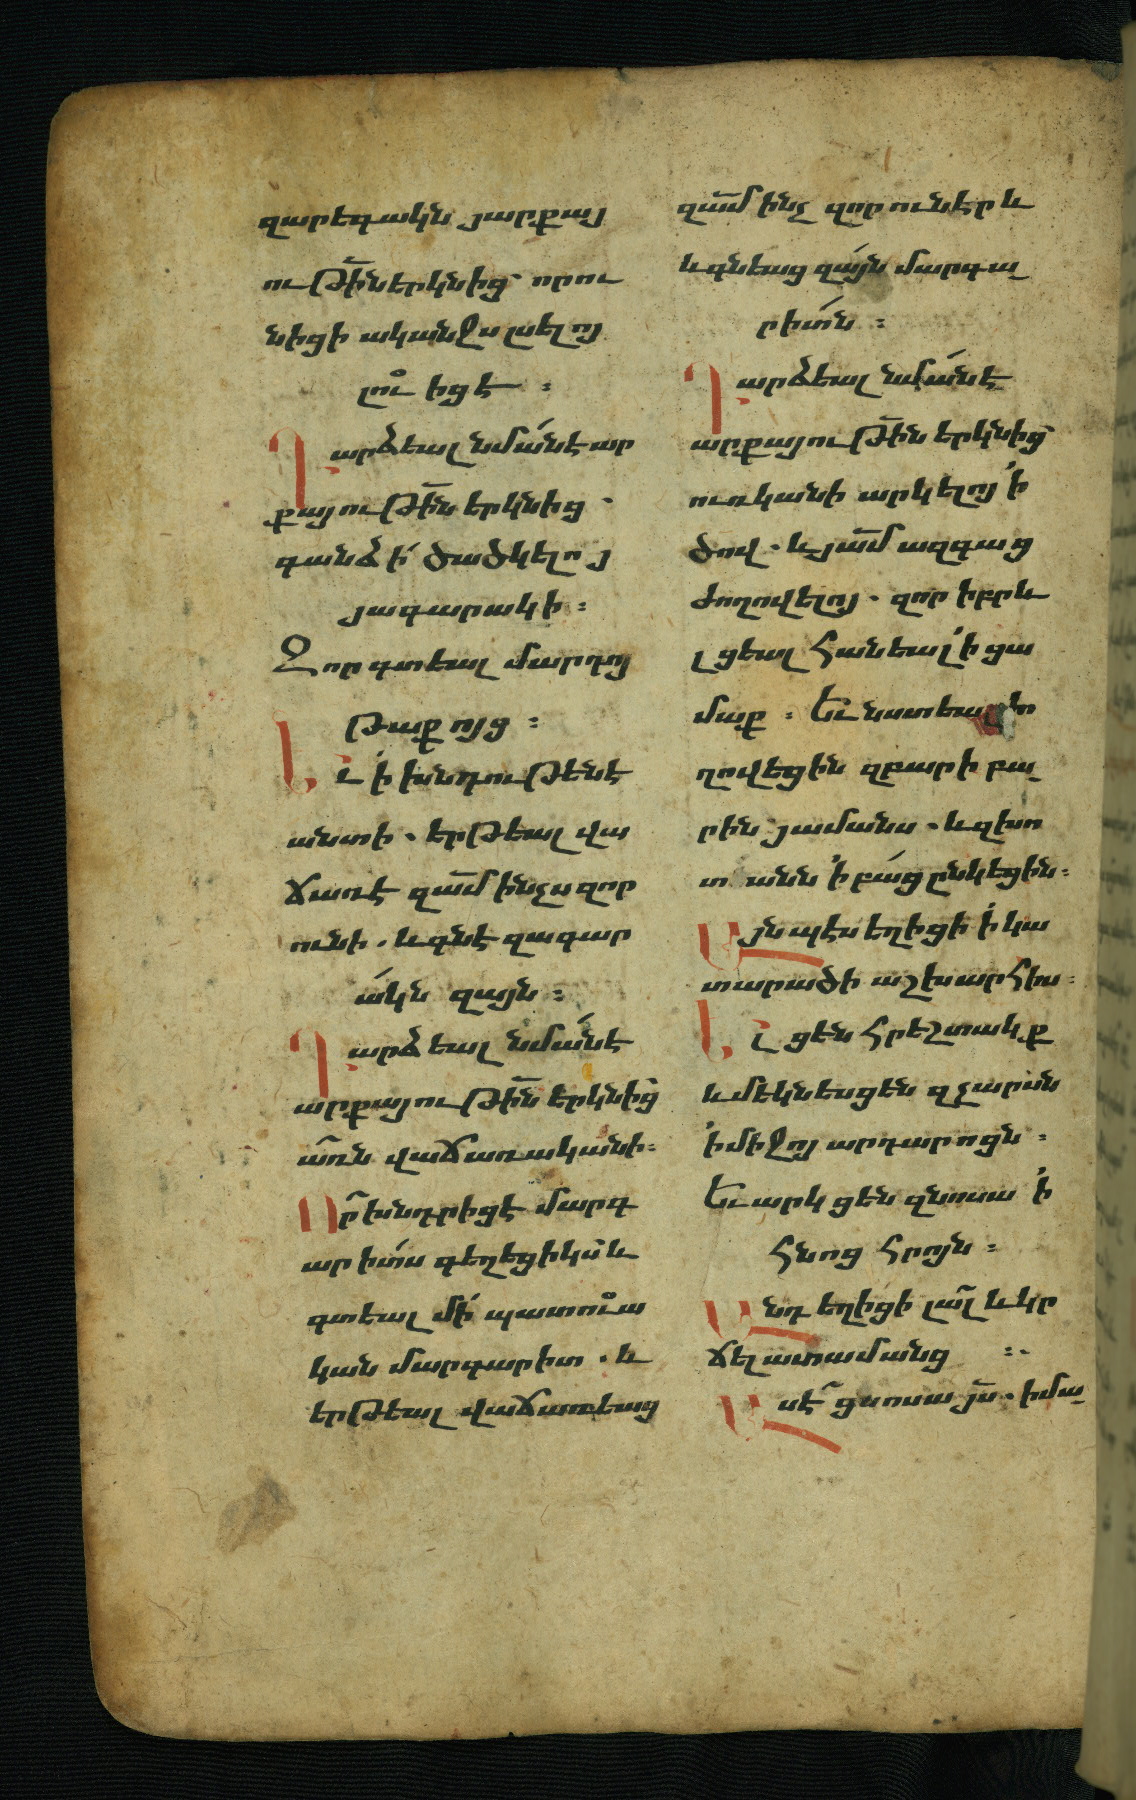 զարեգակն յարքայ
ութիներկնից՝ որու
նիցի ականջս լսելոյ
լուիցէ ։
Դարձեալ նմանէ ար
քայութին երկնից ·
գանձի ծածկելոյ
յագարակի ։
Զոր գտեալ մարդոյ
թաքոյց ։
Եւ ի խնդութենէ
անտի · երթեալ վա
ճառէ զամ ինչս զոր
ունի · և գնէ զագար
ակն զայն ։
Դարձեալ նմանէ
արքայութին երկնից
առն վաճառականի ։
Որ խնդրիցէ մարգ
արիտս գեղեցիկս և
գտեալ մի պատուա
կան մարգարիտ · և
երթեալ վաճառեաց
զամ ինչ զոր ունէր և
և գնեաց զայն մարգա
րիտն ։
Դարձեալ նմանէ
արքայութին երկնից
ուռկանի արկելոյ ի
ծով · և յամ ազգաց
ժողովելոյ · զոր իբրև
լցեալ հանեալ ի ցա
մաք ։ Եւ նստեալ ժո
ղովեցին զբարի բա
րին յամանս · և զխո
տանն ի բաց ընկեցին ։
Այնպէս եղիցի ի կա
տարածի աշխարհիս ։
Ելցեն հրեշտակք
և մեկնեսցեն զչարսն
ի միջոյ արդարոցն ։
Եւ արկցեն զնոսա ի
հնոց հրոյն ։
Անդ եղիցի լալ և կր
ճել ատամանց ։
Ասէ ցնոսա յս · իմա